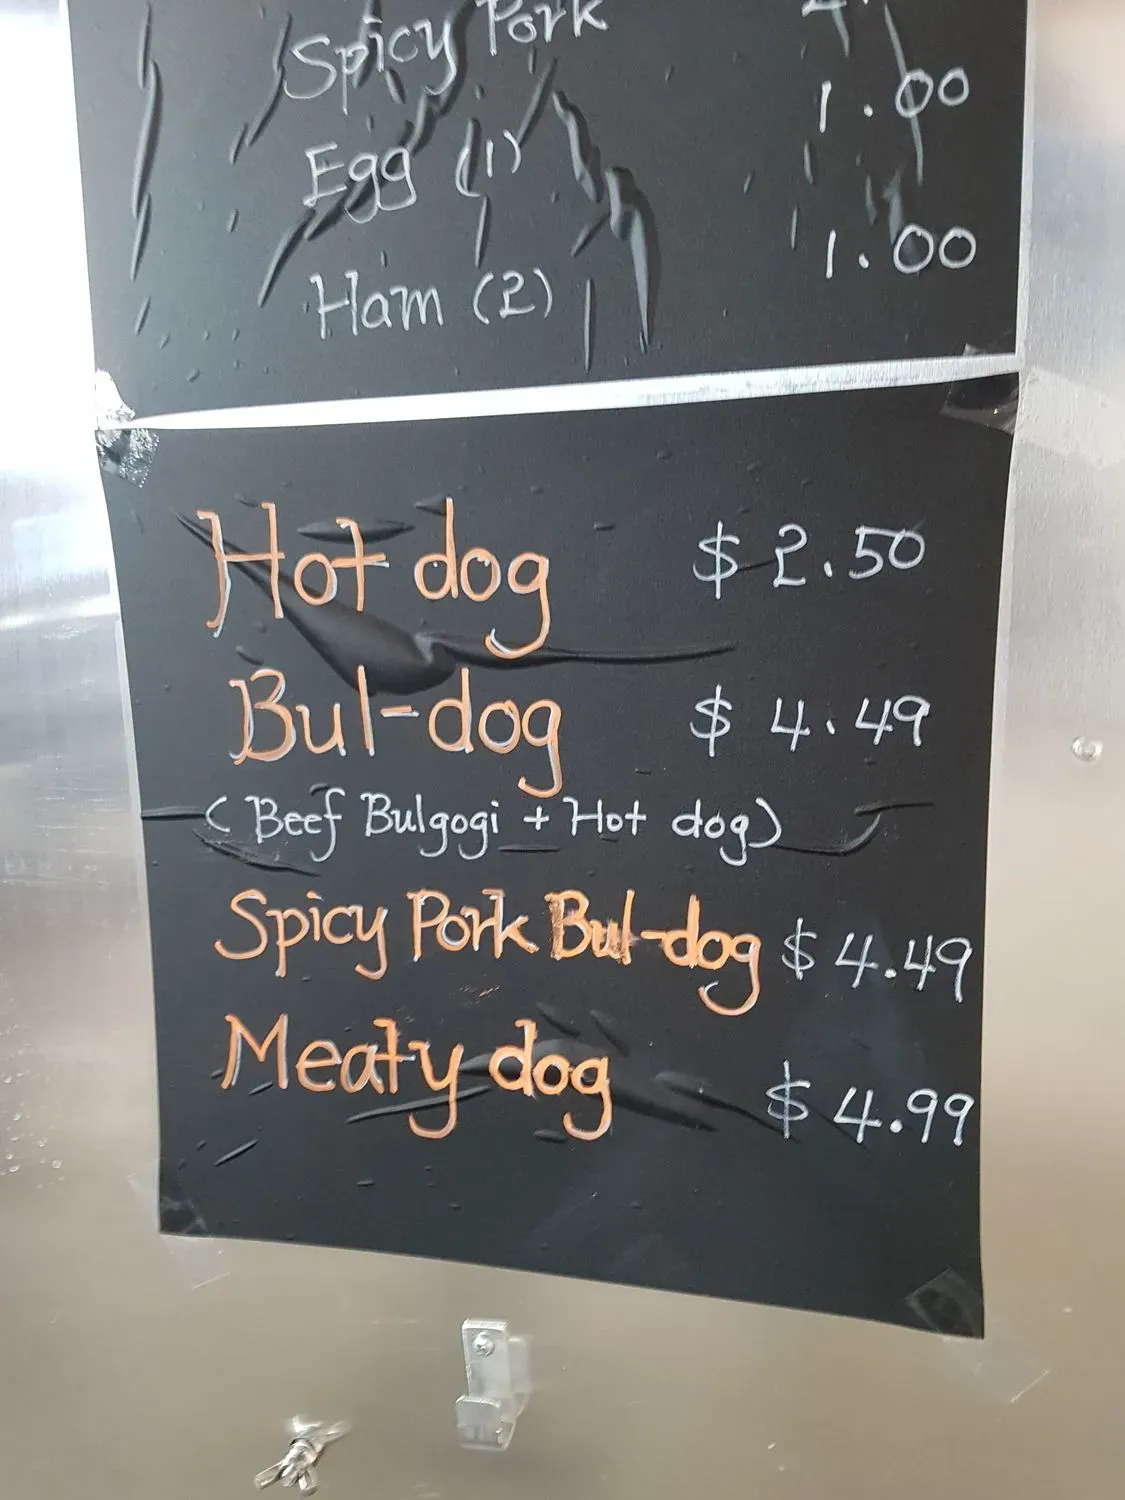 Spicy Pork
Egg (1) 1.00
Ham (2) 1.00
Hot dog $2.50
Bul-dog $4.49
(Beef Bulgogi + Hot dog)
Spicy Pork Bul-dog $4.49
Meaty dog $4.99